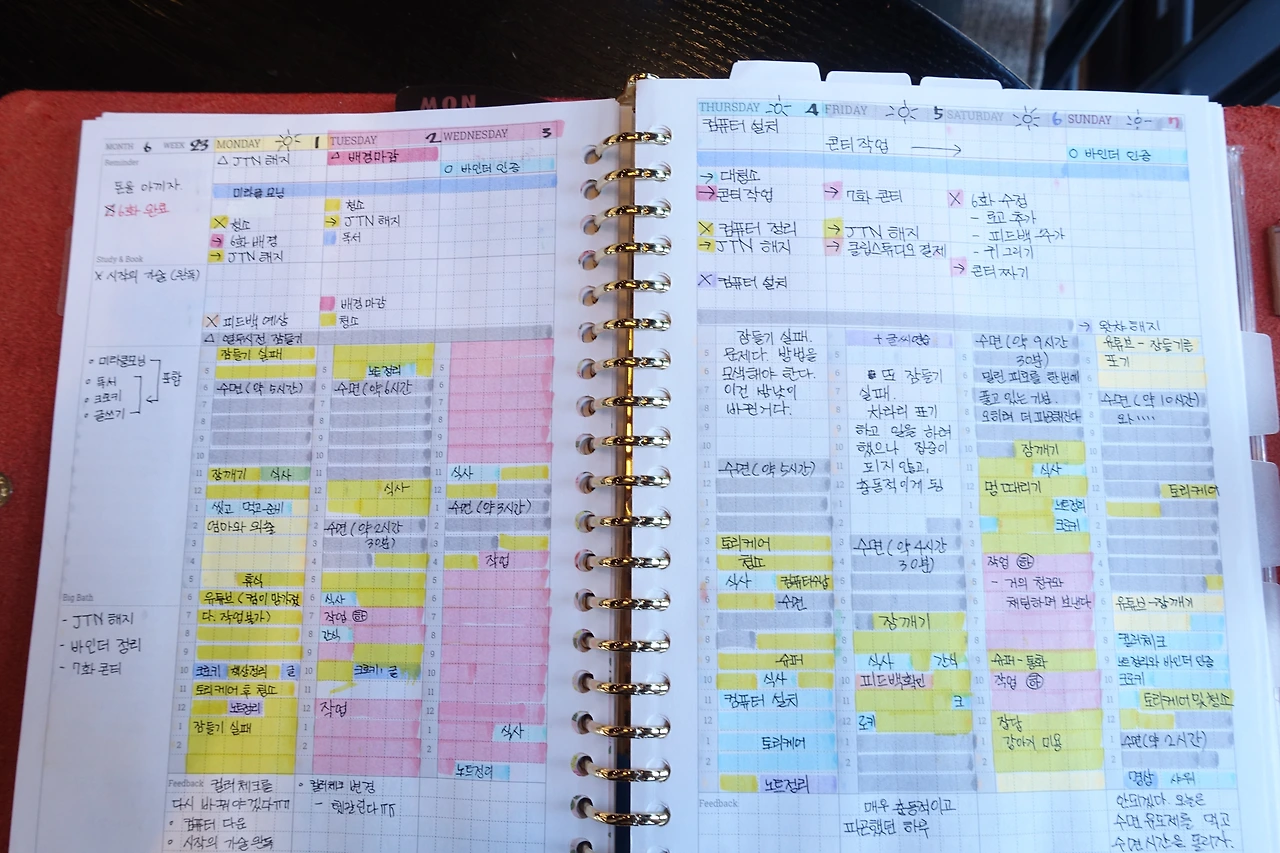 MON
MONTH 6 WEEK 23
MONDAY 1
TUESDAY 2
WEDNESDAY 3
Reminder
돈을 아끼자.
6화 완료
Study & Book
X 시작의 기술 (완독)
○ 미라클모닝
○ 독서
○ 크로키
○ 글쓰기
포함
Big Bath
- JTN 해지
- 바인더 정리
- 7화 콘티
△ JTN 해지
미라클 모닝
X 청소
→ 6화 배경
→ JTN 해지
X 피드백 예상
△ 열두시전 잠들기
잠들기 실패
수면 (약 5시간)
잠깨기 식사
씻고 먹고 준비
엄마와 외출
휴식
유튜브 (컴이 망가졌
다. 작업 불가)
크로키 책상정리 글
토리케어 후 청소
노트정리
잠들기 실패
△ 배경마감
청소
→ JTN 해지
독서
배경마감
청소
노트정리
수면 (약 6시간
식사
수면 (약 2시간
30분)
식사
작업 하
간식
크로키, 글
작업
O 바인더 인증
식사
수면 (약 3시간)
작업
식사
노트정리
Feedback
컬러체크를
다시 바꿔야겠다ㅠㅠ
○ 컴퓨터 다운
○ 시작의 기술 완독
○ 컬러체크 변경
- 헷갈린다ㅠㅠ
THURSDAY 4
FRIDAY 5
SATURDAY 6
SUNDAY 7
컴퓨터 설치
콘티 작업 →
→ 대청소
→ 콘티 작업
X 컴퓨터 정리
→ JTN 해지
X 컴퓨터 설치
잠들기 실패.
문제다. 방법을
모색해야 한다.
이건 밤낮이
바뀐거다.
수면 (약 5시간)
토리케어
청소
식사 컴퓨터수납
수면
슈퍼
식사
컴퓨터 설치
토리케어
노트정리
→ 7화 콘티
→ JTN 해지
→ 클립스튜디오 결제
+ 글씨연습
또 잠들기
실패.
차라리 포기
하고 일을 하려
했으나 집중이
되지 않고,
충동적이게 됨
수면 (약 4시간
30분)
잠깨기
식사 간식
피드백확인
크
로키
X 6화 수정
- 로고 추가
- 피드백 추가
- 귀 그리기
→ 콘티 짜기
수면 (약 9시간
30분)
밀린 피로를 한번에
풀고 있는 기분.
오히려 더 피곤해진다
잠깨기
식사
멍 때리기
노트정리
크로키
작업 하
- 거의 친구와
채팅하며 보냈다
슈퍼 - 통화
작업 하
잡담
강아지 미용
O 바인더 인증
→ 왓챠 해지
유튜브 - 잠들기를
포기
수면 (약 10시간)
와....
토리케어
유튜브 - 잠깨기
컬러체크
노트정리와 바인더 인증
크로키
토리케어 및 청소
수면 (약 2시간)
명상 샤워
Feedback
매우 충동적이고
피곤했던 하루
안되겠다. 오늘은
수면 유도제를 먹고
수면시간을 돌리자.